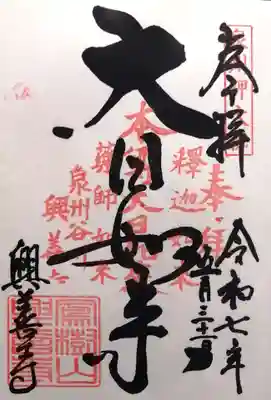 奉拝
令和七年
五月三十一日
大日如来
奉拝
釋迦如来
本尊大日如来
薬師如来
泉州谷川
興善寺
興善寺